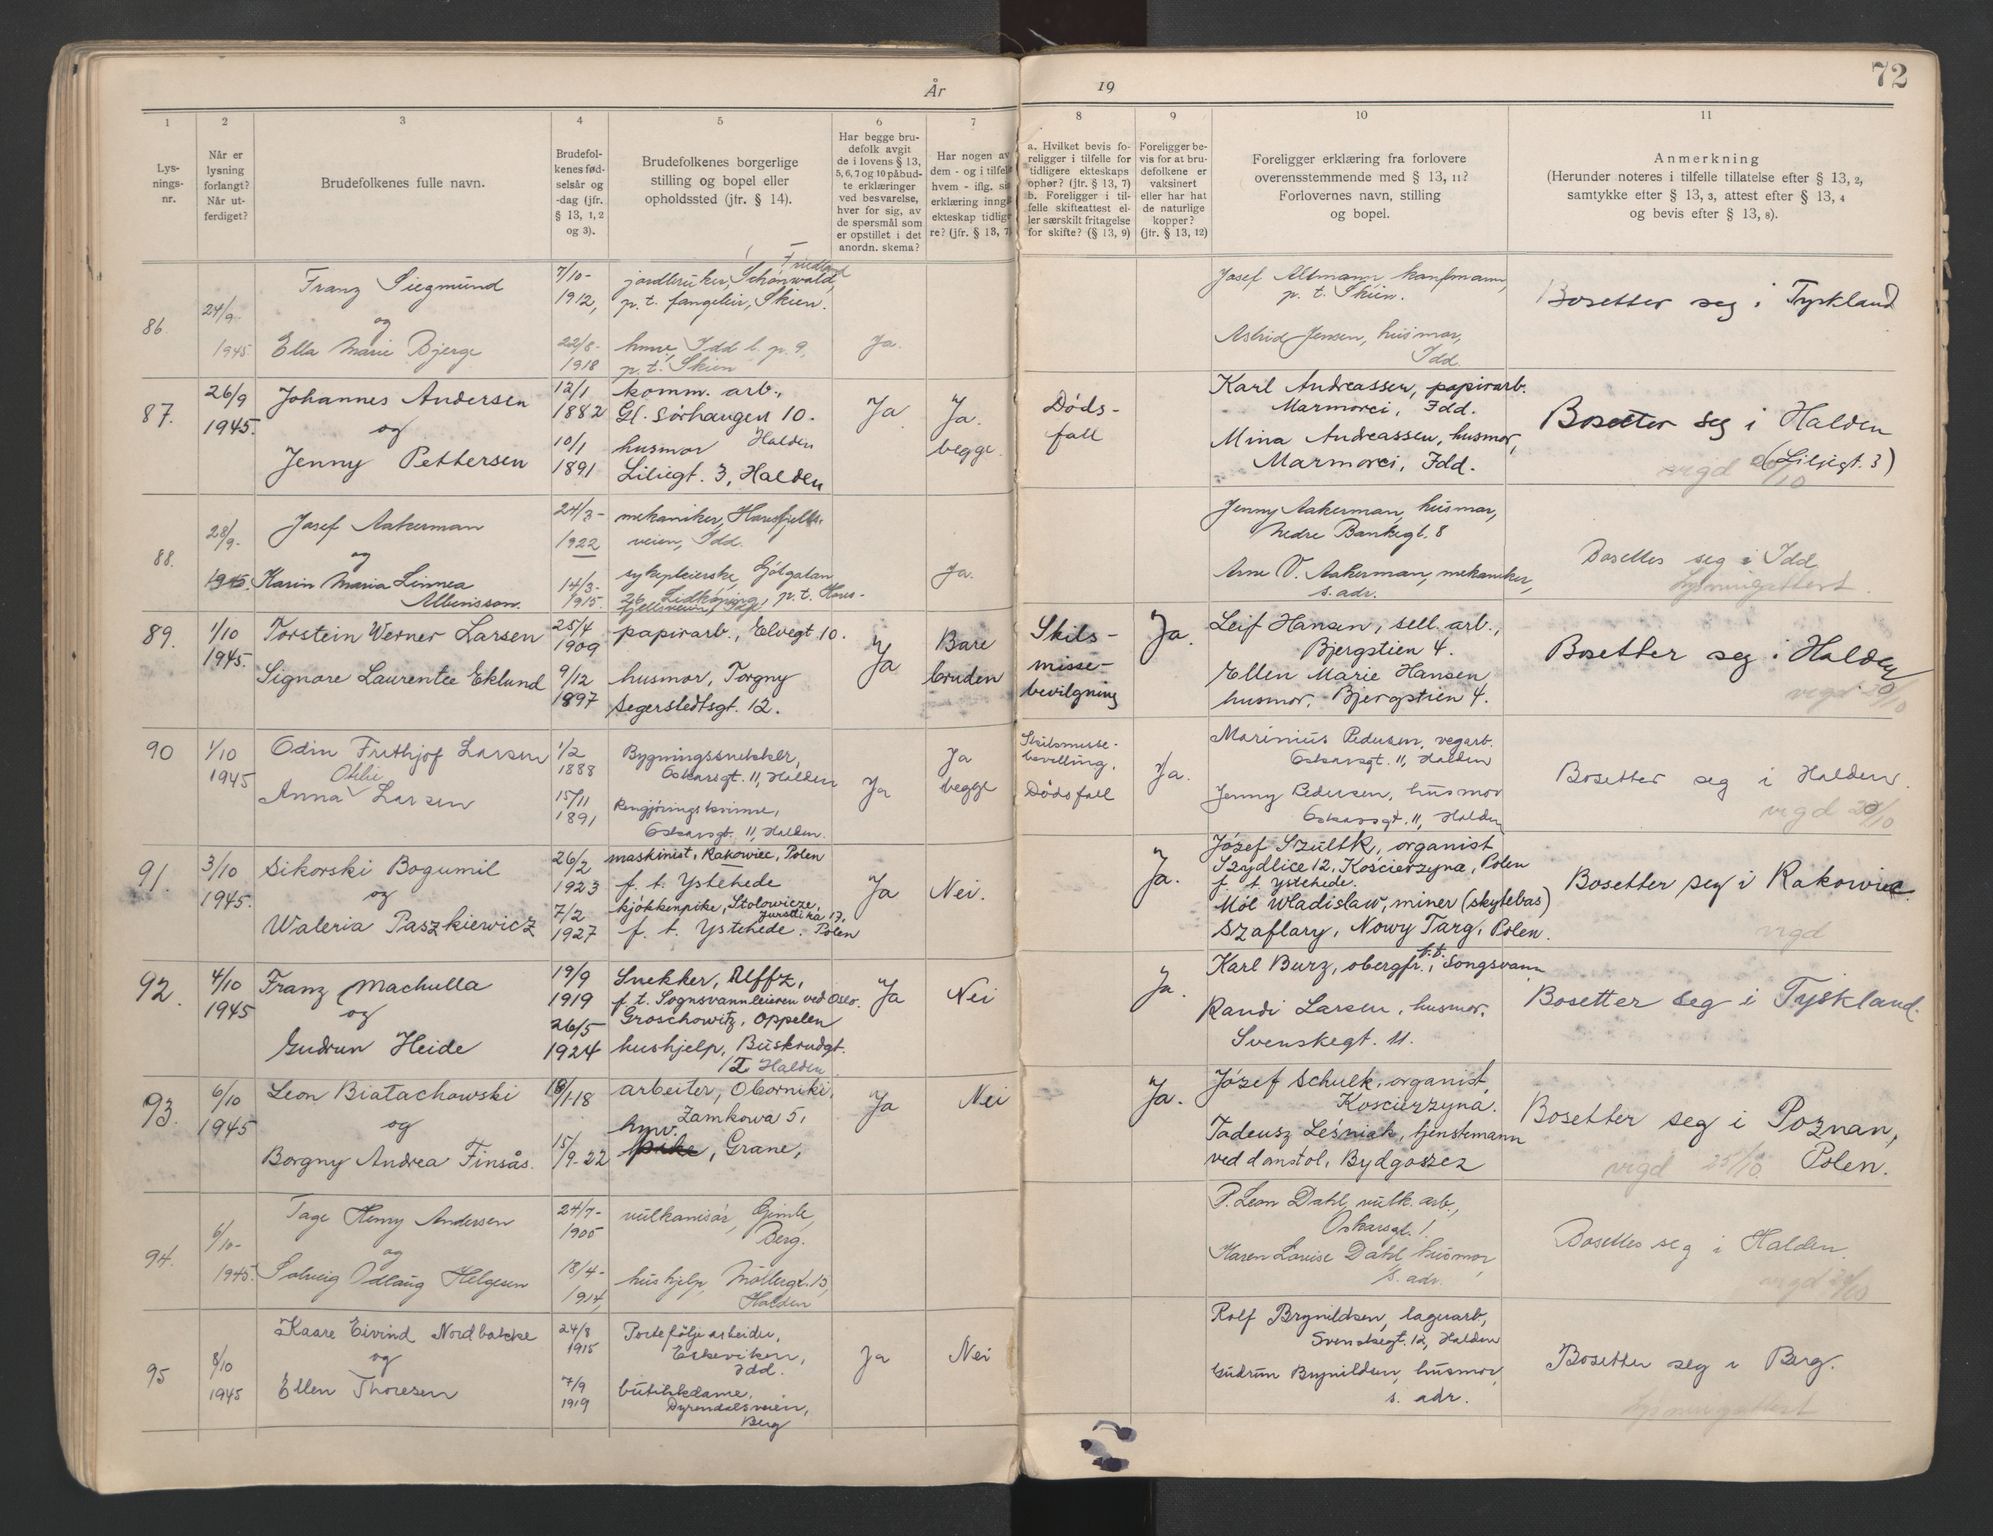 År 19
72
1
Lys-
nings-
nr.
2
Når er
lysning
forlangt?
Når ut-
ferdiget?
3
Brudefolkenes fulle navn.
4
Brudefol-
kenes fød-
selsår og
-dag (jfr.
§ 13, 1, 2
og 3).
5
Brudefolkenes borgerlige
stilling og bopel eller
opholdssted (jfr. § 14).
6
Har begge bru-
defolk avgit
de i lovens § 13,
5, 6, 7 og 10 påbud-
te erklæringer
ved besvarelse,
hver for sig, av
de spørsmål som
er opstillet i det
anordn. skema?
7
Har nogen av
dem - og i tilfelle
hvem - iflg. sin
erklæring inngå
ekteskap tidlig
re? (jfr. § 13, 7)
8
a. Hvilket bevis fo-
religger i tilfelle for
tidligere ekteskaps
ophør? (jfr. § 13, 7)
b. Foreligger i til-
felle skifteattest el-
ler særskilt fritagelse
for skifte? (§ 13, 9)
9
Foreligger be-
vis for at bru-
defolkene er
vaksinert
eller har hat
de naturlige
kopper?
(jfr. § 13, 12)
10
Foreligger erklæring fra forlovere
overensstemmende med § 13, 11?
Forlovernes navn, stilling
og bopel.
11
Anmerkning
(Herunder noteres i tilfelle tillatelse efter § 13, 2,
samtykke efter § 13, 3, attest efter § 13, 4
og bevis efter § 13, 8).
86.
24/9-
1945.
Franz Siegmund
og
Ella Marie Bjerge
7/10-
1912,
22/8-
1918
Friedland
jordbruker, Schönwald,
p. t. fangeleir, Skien.
Idd b. p. 9,
p. t. Skien
Ja.
Josef Altmann kaufmann,
p. t. Skien.
Astrid Jensen, husmor,
Idd.
Bosetter seg i Tyskland
87.
26/9
1945.
Johannes Andersen
og
Jenny Pettersen
12/1
1882
10/1
1891
komm. arb.,
Gl. Sørhaugen 10.
Halden
husmor
Liliegt. 3, Halden
Ja
Ja.
begge.
Døds-
fall
Karl Andreassen, papirarb.
Marmorei, Idd.
Mina Andreassen, husmor,
Marmorei, Idd.
Bosetter seg i Halden
(Liljegt. 3)
vigd 20/10
88.
28/9-
1945.
Josef Aakerman
og
Karin Maria Linnea
Albinsson.
24/3-
1922
14/3-
1915.
mekaniker, Haresfjells-
veien, Idd.
sykepleierske, Götgatan
26 Lidköping, p. t. Hares-
fjellsveien, Idd.
Ja.
Jenny Aakerman, husmor,
Nedre Bankegt. 8
Arne V. Aakerman, mekaniker,
s. adr.
Bosettes seg i Idd
Lysningattest.
89.
1/10
1945.
Torstein Werner Larsen
Signore Laurentze Eklund
25/4
1909
9/12
1897
papirarb., Elvegt 10.
husmor, Torgny
Segerstedtsgt. 12.
Ja
Bare
bruden
Skils-
misse-
bevilgning
Ja.
Leif Hansen, sell. arb.,
Bjergstien 4.
Ellen Marie Hansen
husmor, Bjergstien 4.
Bosetter seg i Halden
vigd 20/10
90
1/10
1945
Odin Frithjof Larsen
Otilie
Anna Larsen
1/2
1888
15/11
1891
Bygningssnekker,
Oskarsgt. 11, Halden
Rengjøringskvinne,
Oskarsgt. 11, Halden.
Ja
Ja
begge
Skilsmisse-
bevilling.
Dødsfall
Ja.
Marinius Pedersen, vegarb.
Oskarsgt. 11, Halden
Jenny Pedersen, husmor
Oskarsgt. 11, Halden
Bosetter seg i Halden.
vigd 20/10
91.
3/10
1945.
Sikorski Bogumil
og
Waleria Paszkiewicz
26/2
1923
7/2
1927
maskinist, Rakowiec, Polen
f. t. Ystehede
kjøkkenpike, Stolowicze,
Jurstika 17.
f. t. Ystehede. Polen
Ja
Nei.
Ja.
Józef Szultk, organist
Szydlice 12, Kościerzyna, Polen
f. t. Ystehede.
Mól Wladislaw, miner (skytebas)
Szaflary, Nowy Targ, Polen.
Bosetter seg i Rakowiec.
vigd
92.
4/10
1945
Franz Machulla
og
Gudrun Heide
19/9
1919
26/5
1924
Snekker, Uffz,
f. t. Sognsvannleieren ved Oslo.
Groschowitz, Oppelen
hushjelp, Buskrudgt.
1 I Halden
Ja
Nei
Ja.
Karl Burz, obergfr., f.t. Songsvann
Randi Larsen, husmor,
Svenskegt. 11.
Bosetter seg i Tyskland.
93.
6/10
1945
Leon Biatachowski
og
Borgny Andrea Finsås.
/1-18
15/9-22
arbeiter, Oborniki,
Zamkowa 5,
, Grane,
Ja
Nei
Ja.
Józef Schulk, organist,
Koscierzyna.
Tadeusz Leśniak, tjenstemann
ved domstol, Bydgoszcz
Bosetter seg i Poznan,
Polen.
vigd 25/10
94.
6/10-
1945.
Tage Henry Andersen
og
Solveig Odlaug Helgesen
24/7-
1905
18/4-
1914,
vulkanisør, Gimle,
Berg.
hushjelp, Møllergt. 13,
Halden
P. Leon Dahl, vulk. arb.,
Oskarsgt. 1.
Karen Louise Dahl husmor,
s. adr.
Bosettes seg i Halden.
vigd 20/10
95
8/10
1945
Kaare Eivind Nordbakke
og
Ellen Thoresen
24/8
1915
7/9
1919
Portefølje arbeider,
Eskeviken,
Idd.
butikkdame,
Dyrendalsveien,
Berg
Ja
Nei
Rolf Brynildsen, lagerarb,
Svenskegt. 12, Halden
Gudrun Brynildsen, husmor,
s. adr.
Bosetter seg i Berg.
Lysningattest